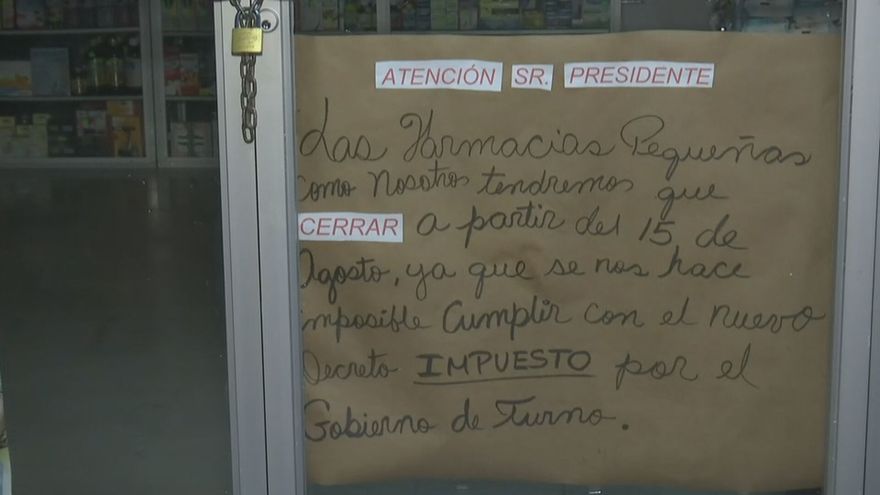 ATENCIÓN SR. PRESIDENTE
Las Farmacias Pequeñas
como Nosotros tendremos que
CERRAR a partir del 15 de
Agosto, ya que se nos hace
imposible Cumplir con el nuevo
Decreto IMPUESTO por el
Gobierno de Turno.